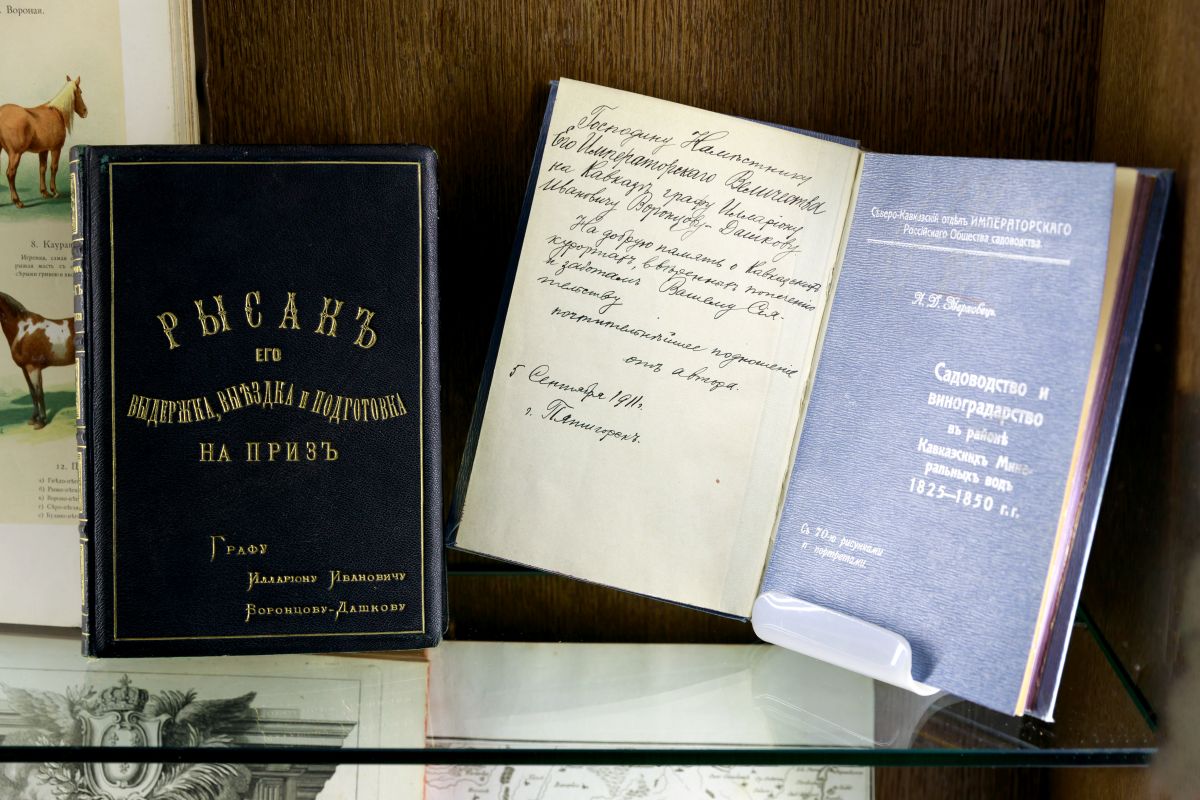 . Вороная.
8. Каурая
12. П
РЫСАКЪ
ЕГО
ВЫДЕРЖКА, ВЫѢЗДКА И ПОДГОТОВКА
НА ПРИЗЪ
ГРАФУ
ИЛЛАРIОНУ ИВАНОВИЧУ
ВОРОНЦОВУ-ДАШКОВУ
Господину Намѣстнику
Его Императорскаго Величества
на Кавказѣ графу Илларiону
Ивановичу Воронцову-Дашкову
На добрую память о Кавказскихъ
курортахъ, ввѣренныхъ попеченiю
и заботамъ Вашему Сiя-
тельству
почтительнѣйшее подношенiе
отъ автора.
5 Сентября 1911 г.
г. Пятигорскъ.
Сѣверо-Кавказскiй отдѣлъ ИМПЕРАТОРСКАГО
Россiйскаго Общества садоводства.
Садоводство и
виноградарство
въ районѣ
Кавказскихъ Мине-
ральныхъ водъ
1825—1850 г.г.
Съ 70-ю рисунками
и портретами.